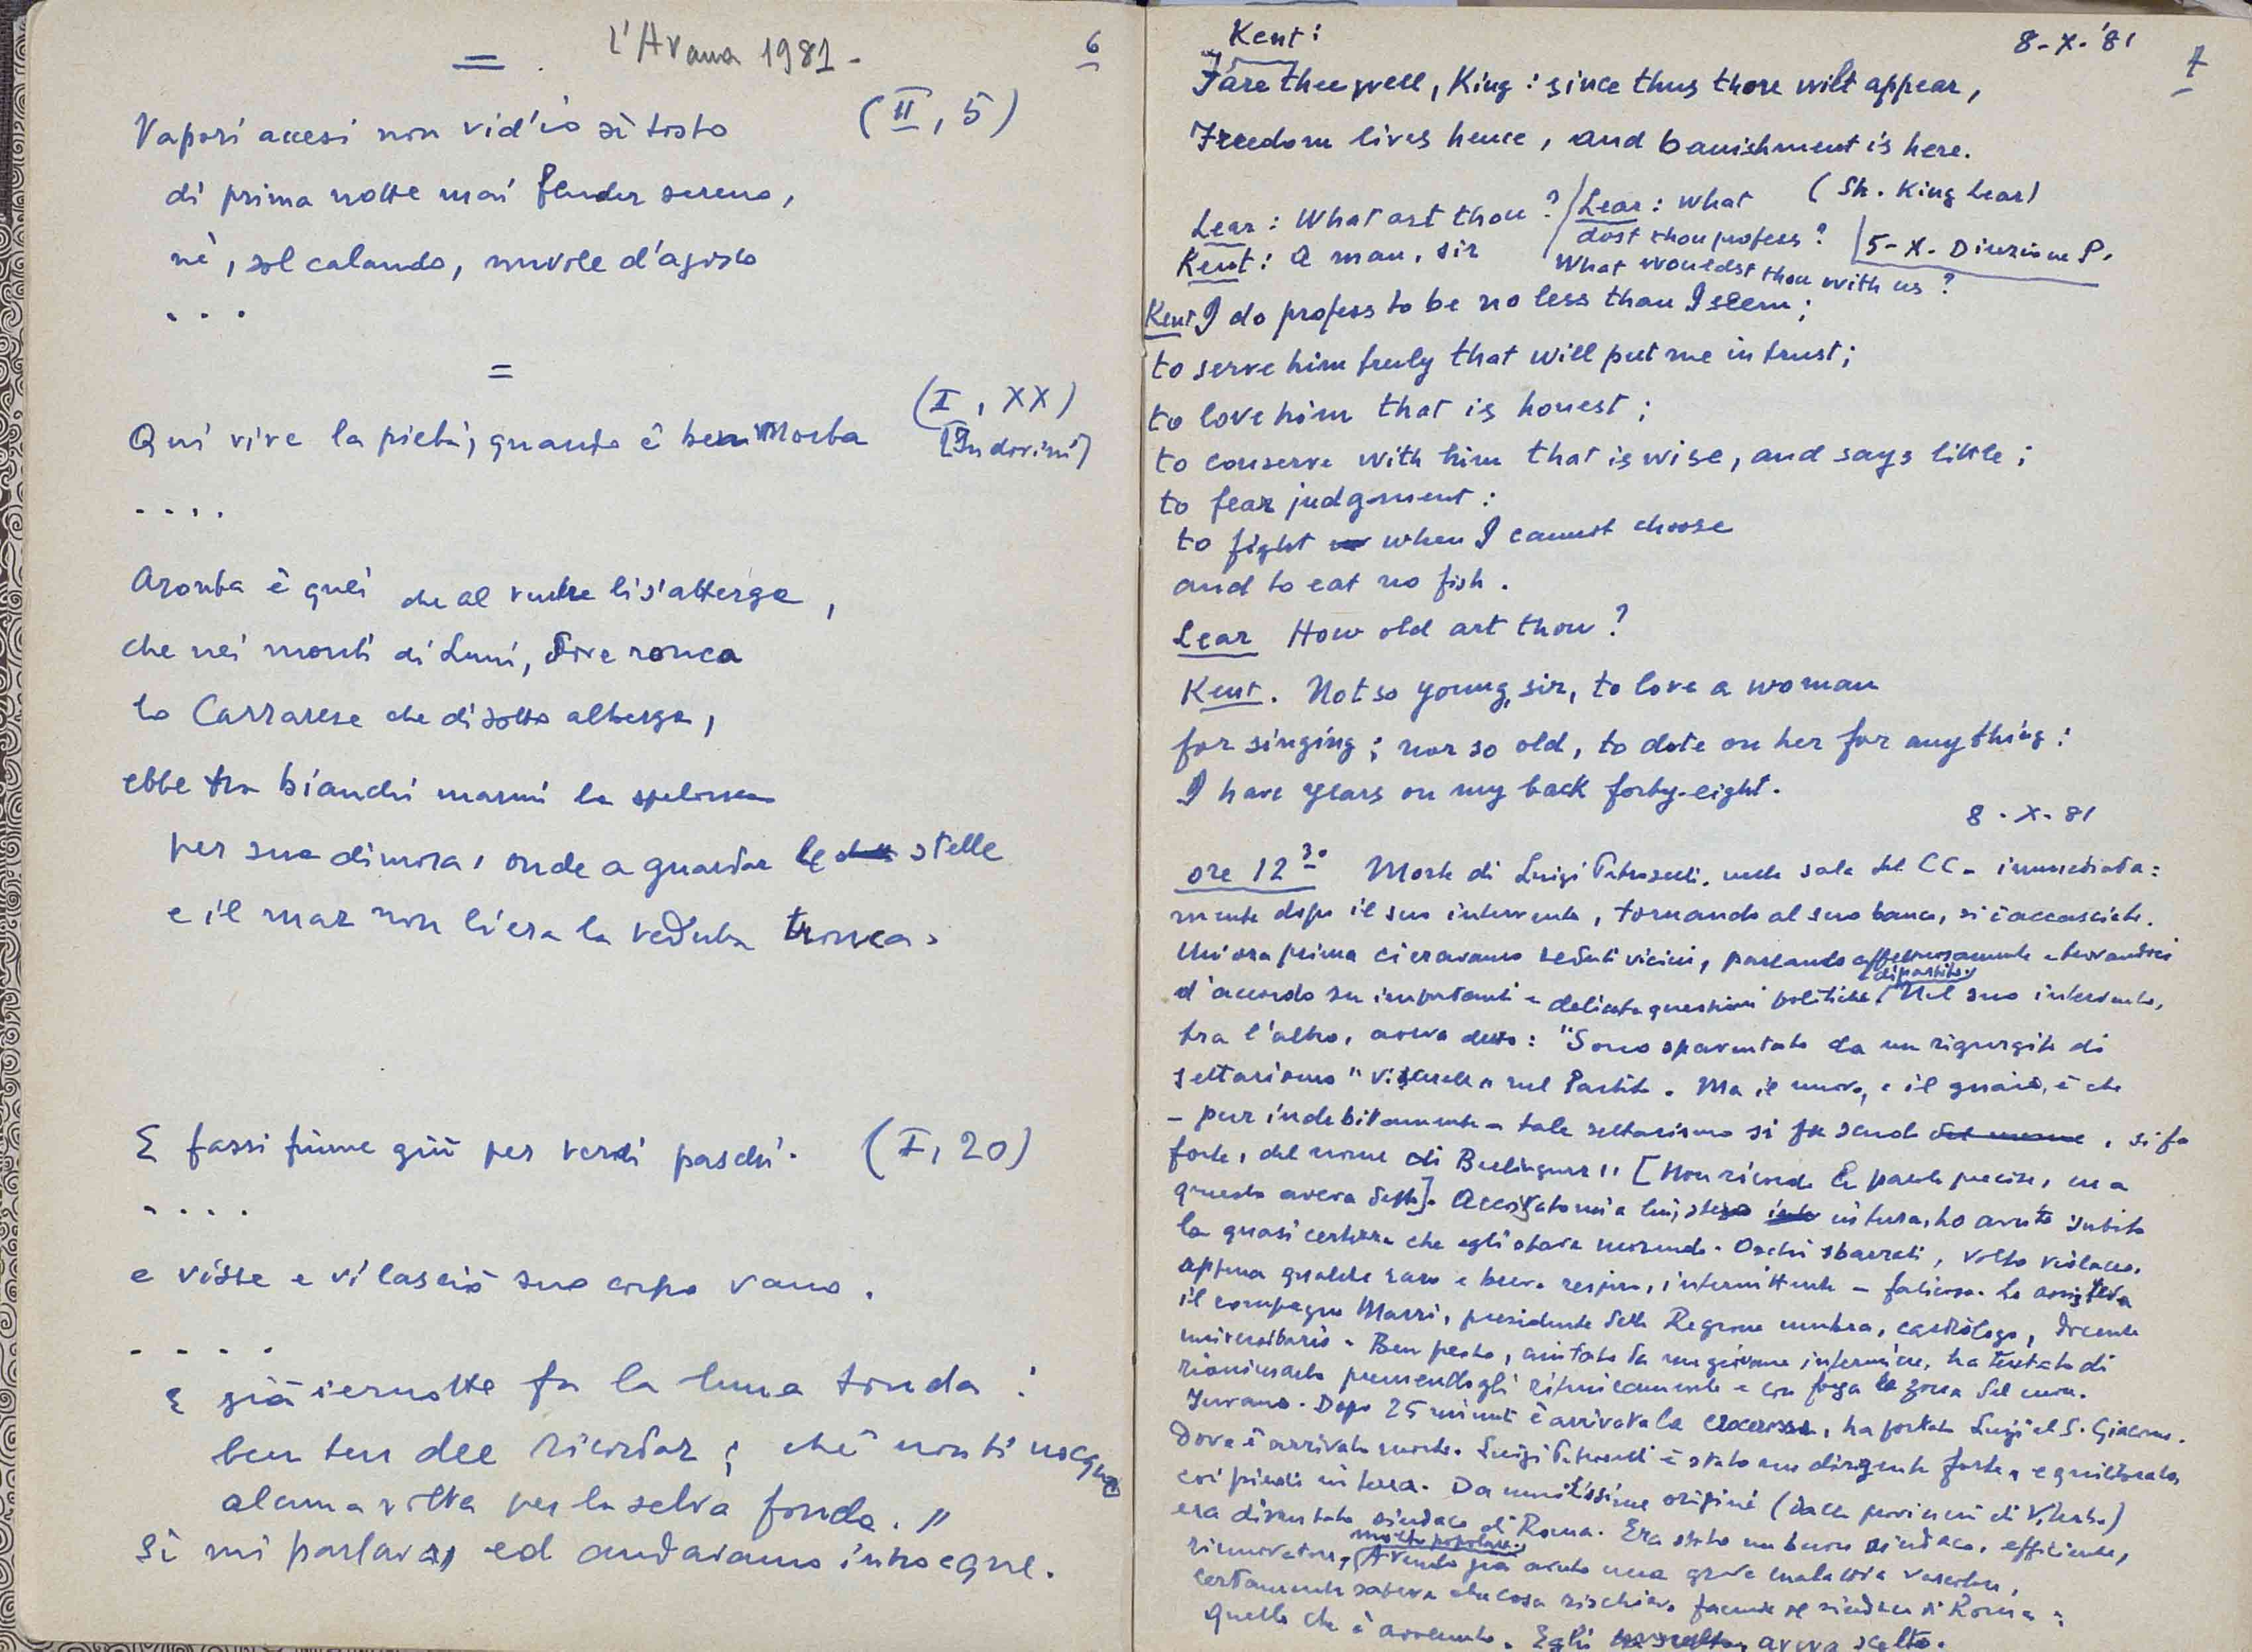 = . L'Avana 1981 -
6
Vapori accesi non vid'io sì tosto (II, 5)
di prima notte mai fender sereno,
nè, sol calando, nuvole d'agosto
. . .
=
Qui vive la pietà, quando è ben morta (I, XX)
[Indovini]
. . . .
Aronta è quei che al ventre li s'atterga,
che nei monti di Luni, dove ronca
lo Carrarese che di sotto alberga,
ebbe tra bianchi marmi la spelonca
per sua dimora, onde a guardar le stelle
e il mar non li era la veduta tronca.
E fassi fiume giù per verdi paschi. (I, 20)
. . . .
e visse e vi lasciò suo corpo vano.
. . . .
E già iernotte fu la luna tonda :
ben ten dee ricordar ; chè non ti nocque
alcuna volta per la selva fonda. "
Sì mi parlava, ed andavamo introcque.
Kent : 8-X-'81
7
Fare thee well, King : since thus thou wilt appear,
Freedom lives hence, and banishment is here.
(Sh. King Lear)
Lear : What art thou ? / Lear : What
dost thou profess ? 5-X. Direzione P.
Kent : A man, sir What wouldst thou with us ?
Kent I do profess to be no less than I seem ;
to serve him truly that will put me in trust ;
to love him that is honest ;
to converse with him that is wise, and says little ;
to fear judgment :
to fight when I cannot choose
and to eat no fish.
Lear How old art thou ?
Kent. Not so young, sir, to love a woman
for singing ; nor so old, to dote on her for anything :
I have years on my back forty-eight.
8-X-81
ore 12 30 Morte di Luigi Petroselli, nella sala del CC - immediata=
mente dopo il suo intervento, tornando al suo banco, si è accasciato.
Un'ora prima ci eravamo seduti vicini, parlando affettuosamente e trovandoci
d'accordo su importanti e delicate questioni politiche e di partito. Nel suo intervento,
tra l'altro, aveva detto : "Sono spaventato da un rigurgito di
settarismo "viscerale" nel Partito. Ma il nuovo, e il guaio, è che
- pur indebitamente - tale settarismo si fa scudo del nome, si fa
forte, del nome di Berlinguer". [Non ricordo le parole precise, ma
questo aveva detto]. Accostatomi a lui, steso in terra, ho avuto subito
la quasi certezza che egli stava morendo. Occhi sbarrati, volto violaceo,
appena qualche raro e breve respiro, intermittente - faticoso. Lo assisteva
il compagno Marri, presidente della Regione umbra, cardiologo, docente
universitario. Ben presto, aiutato da un giovane infermiere, ha tentato di
rianimarlo premendogli ritmicamente e con forza la zona del cuore.
Invano. Dopo 25 minuti è arrivata la crocerossa, ha portato Luigi al S. Giacomo.
Dove è arrivato morto. Luigi Petroselli è stato un dirigente forte, equilibrato,
coi piedi in terra. Da umilissime origini (dalla provincia di Viterbo)
era diventato sindaco di Roma. Era stato un buon sindaco, efficiente,
rinnovatore, molto popolare. Avendo già avuto una grave malattia vascolare,
certamente sapeva che cosa rischiava facendo il sindaco di Roma :
quello che è avvenuto. Egli aveva scelto.